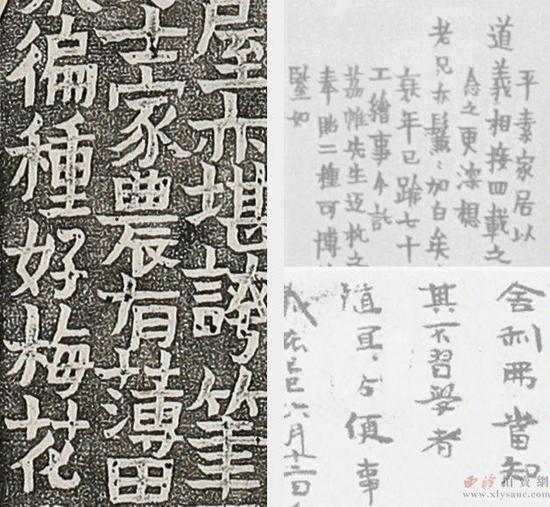 屋亦堪誇筆
士家農有薄田
徧種好梅花
平素家居以
道義相接四載之
念之更深想
老兄亦鬢〻加白矣
衰年已踰七十
工繪事今託
先生返杭之
奉貽二種可博
鑒如
舍利弗當知
其不習學者
隨宜方便事
歲在己巳六月十二日
西泠拍賣網
www.xlysauc.com